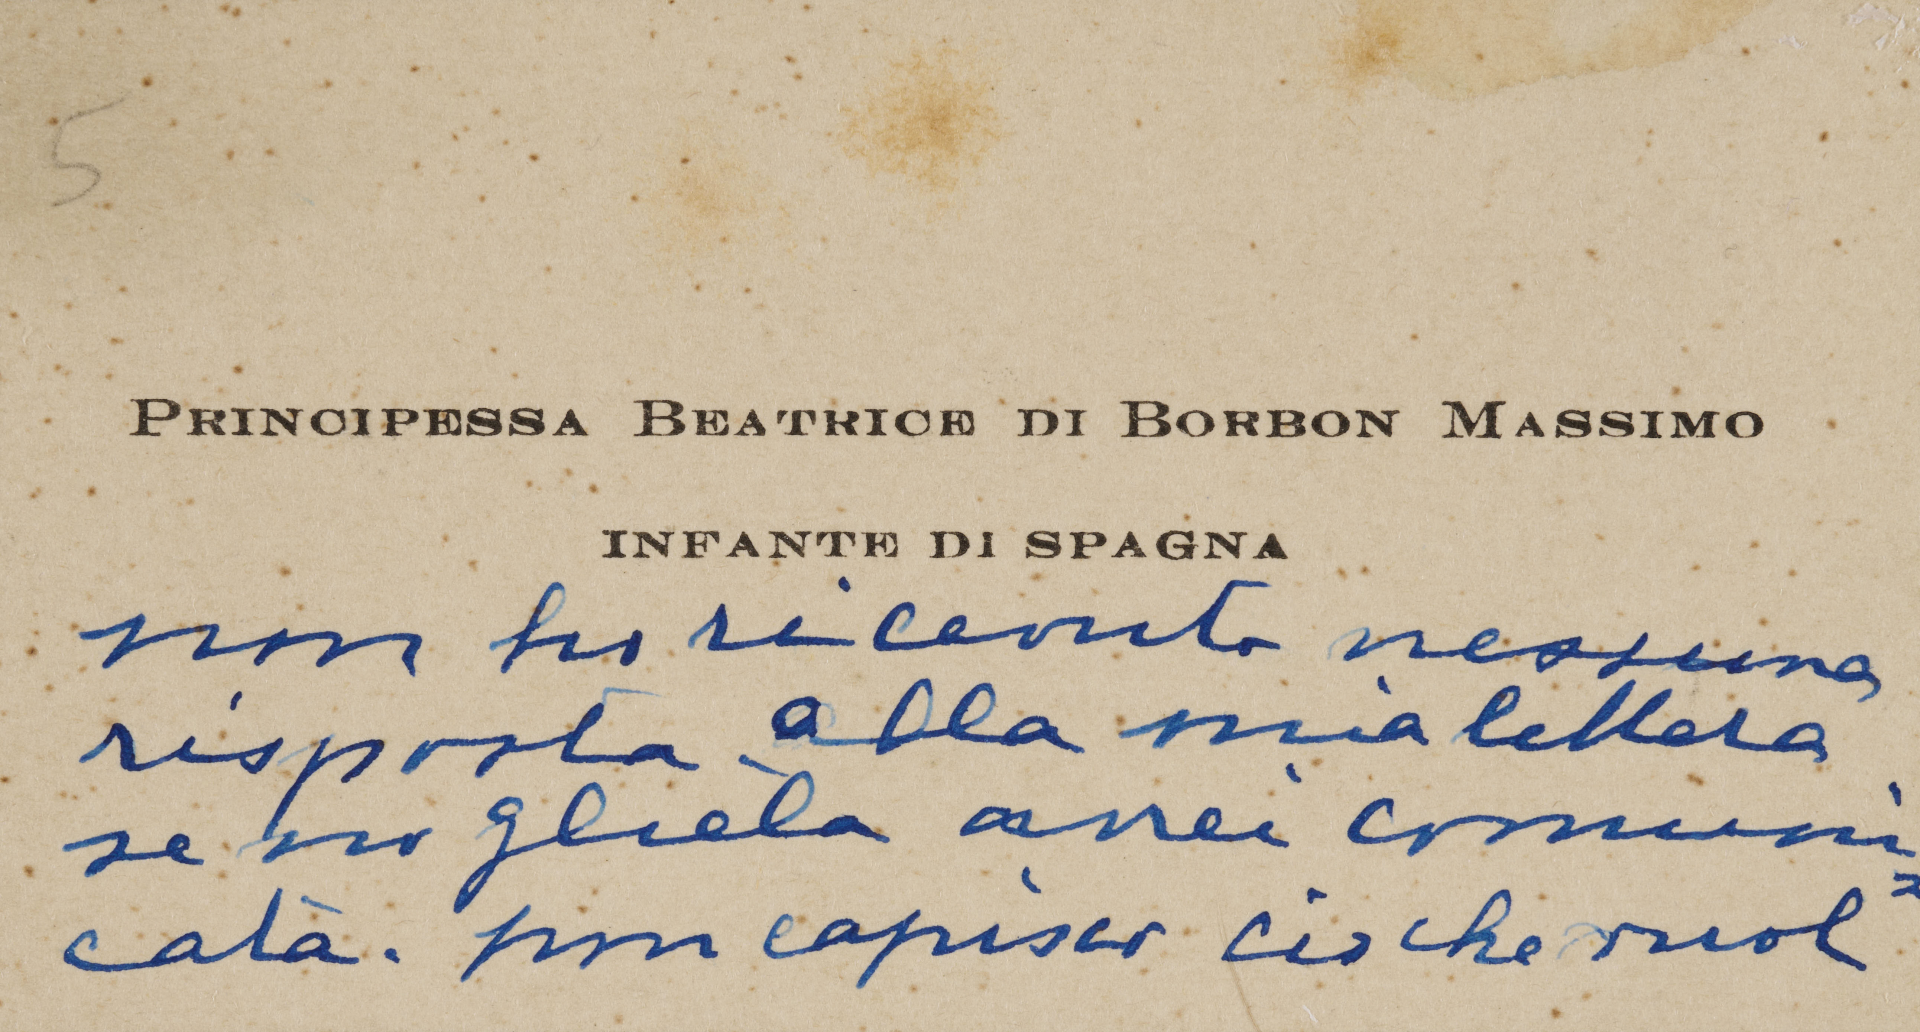 5
PRINCIPESSA BEATRICE DI BORBON MASSIMO
INFANTE DI SPAGNA
non ho ricevuto nessuna
risposta alla mia lettera
se no gliela avrei comuni=
cata. non capisco ciò che vuol